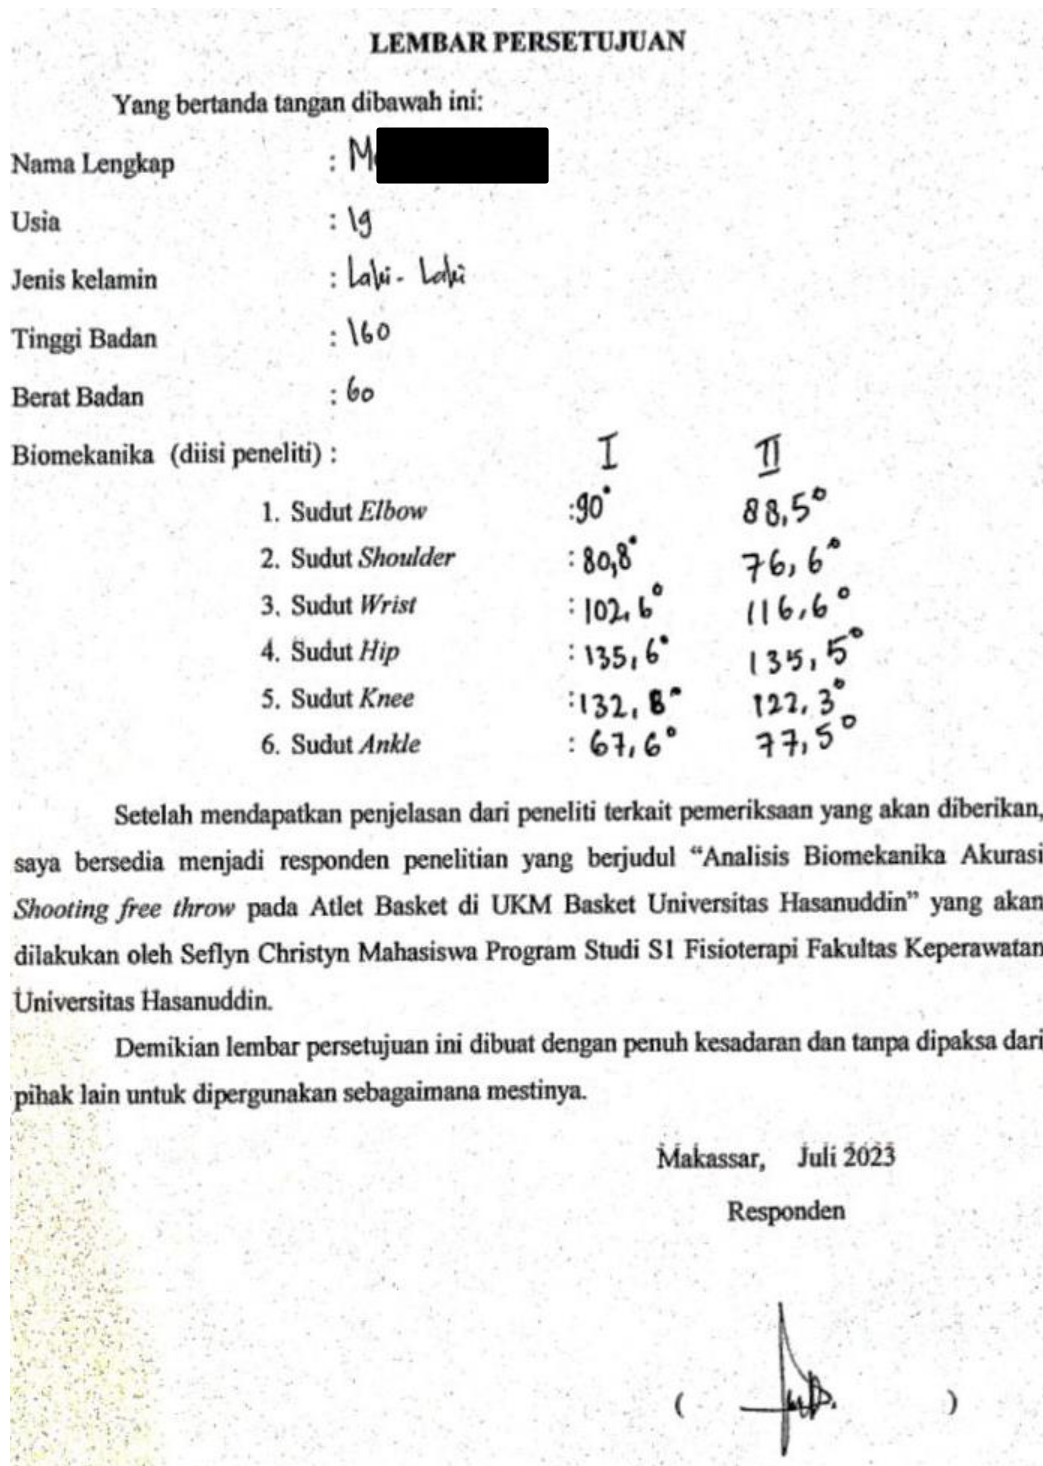 LEMBAR PERSETUJUAN
Yang bertanda tangan dibawah ini:
Nama Lengkap : M
Usia : 19
Jenis kelamin : Laki - Laki
Tinggi Badan : 160
Berat Badan : 60
Biomekanika (diisi peneliti) : I II
1. Sudut Elbow :90° 88,5°
2. Sudut Shoulder : 80,8° 76,6°
3. Sudut Wrist : 102,6° 116,6°
4. Sudut Hip : 135,6° 135,5°
5. Sudut Knee :132,8° 122,3°
6. Sudut Ankle : 67,6° 77,5°
Setelah mendapatkan penjelasan dari peneliti terkait pemeriksaan yang akan diberikan,
saya bersedia menjadi responden penelitian yang berjudul “Analisis Biomekanika Akurasi
Shooting free throw pada Atlet Basket di UKM Basket Universitas Hasanuddin” yang akan
dilakukan oleh Seflyn Christyn Mahasiswa Program Studi S1 Fisioterapi Fakultas Keperawatan
Universitas Hasanuddin.
Demikian lembar persetujuan ini dibuat dengan penuh kesadaran dan tanpa dipaksa dari
pihak lain untuk dipergunakan sebagaimana mestinya.
Makassar, Juli 2023
Responden
( )